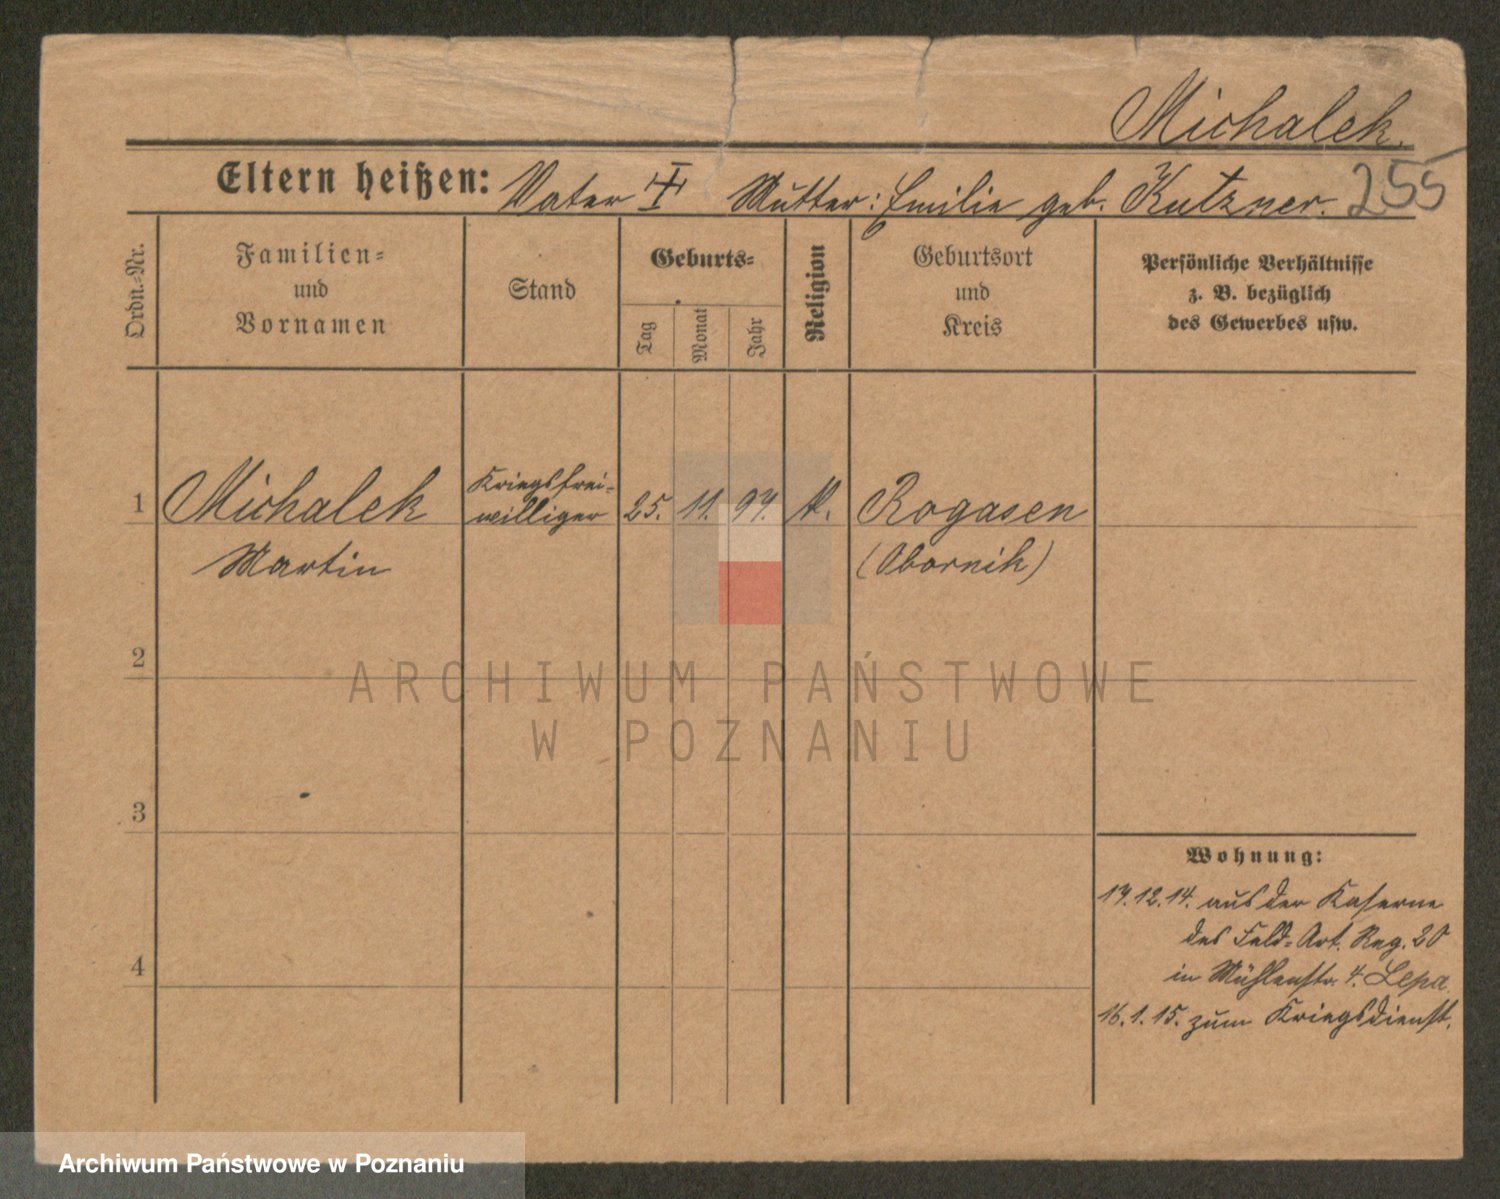 Michalek.
Eltern heißen: Vater ‡ Mutter: Emilie geb. Kutzner. 255
Ordn.-Nr.
Familien-
und
Vornamen
Stand
Geburts-
Tag
Monat
Jahr
Religion
Geburtsort
und
Kreis
Persönliche Verhältnisse
z. B. bezüglich
des Gewerbes usw.
1 Michalek Kriegsfrei-
williger 25. 11. 97. k. Rogasen
Martin (Obornik)
2
ARCHIWUM PAŃSTWOWE
W POZNANIU
3
Wohnung:
17.12.14. aus der Kaserne
des Feld-Art. Reg. 20
4
in Mühlenstr. 4. Lepa.
16.1.15. zum Kriegsdienst.
Archiwum Państwowe w Poznaniu